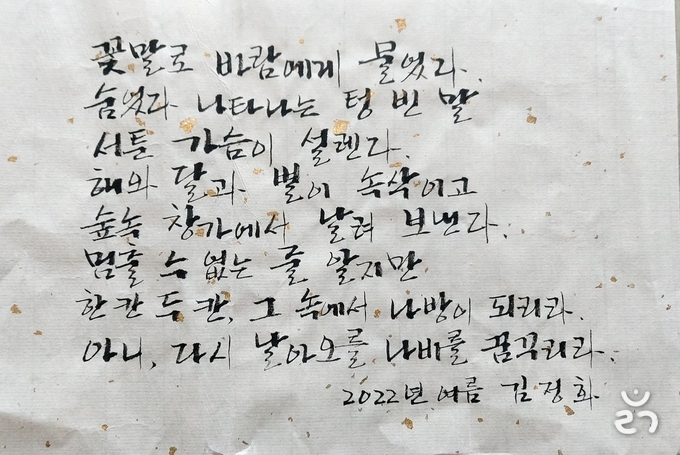 꽃말로 바람에게 물었다.
숨었다 나타나는 텅 빈 말
서툰 가슴이 설렌다.
해와 달과 별이 속삭이고
숲속 창가에서 날려 보낸다.
멈출 수 없는 줄 알지만
한 칸 두 칸, 그 속에서 나방이 되리라.
아니, 다시 날아오를 나비를 꿈꾸리라.
2022년 여름 김정화